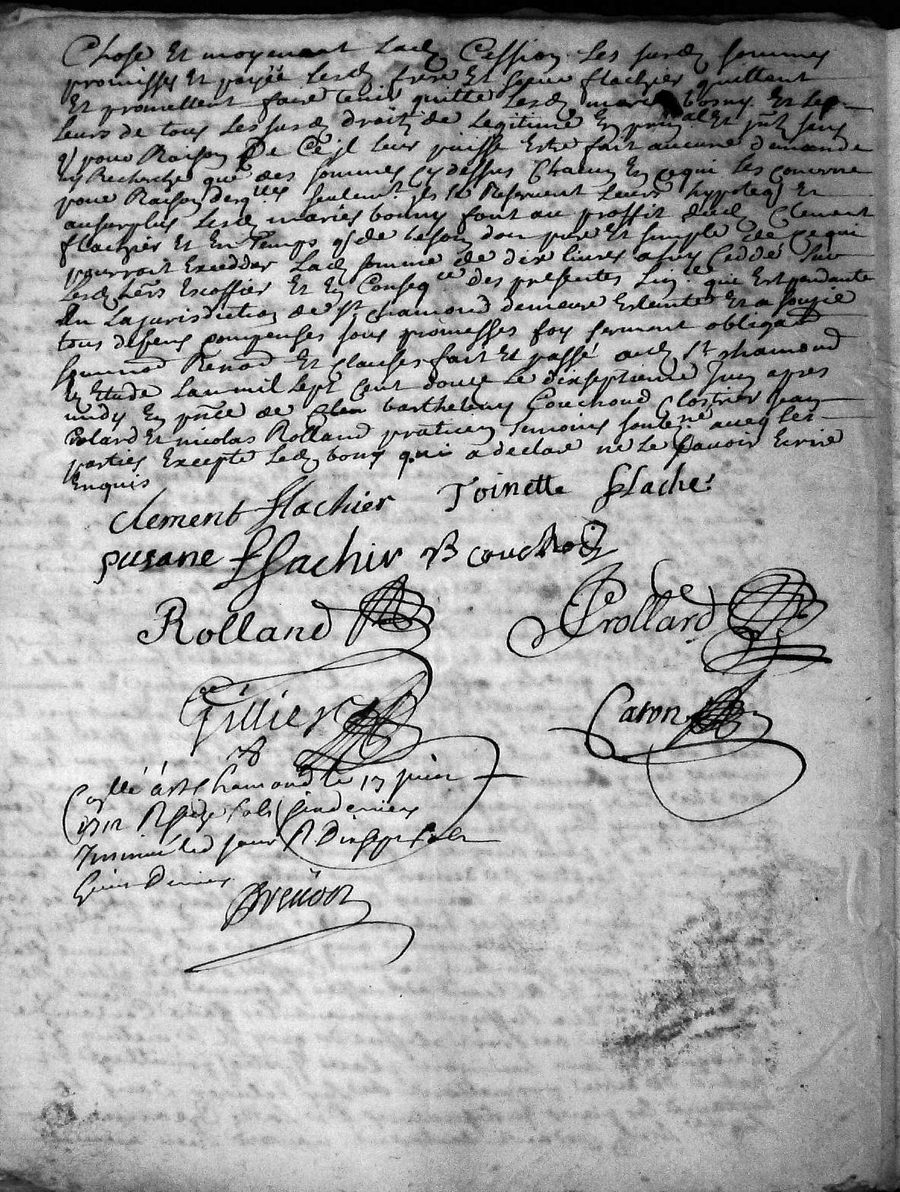 Chose Et moyenant lad Cession les surd sommes
promisses Et payée lesd frere Et seur flachier quittent
Et promettent faire tenir quitte lesd mariés bony Et les
leurs de tous les surd droitz de legitime En prinal Et
pour Raison De ce jl leur puisse Estre fait aucune demande
ny Recherche que des sommes cy dessus Chacun En ce qui les concerne
pour Raison desqlles seulemt jls se Reservent leurs hypoteq Et
au surplus lesd mariés bony font au proffit dud Clement
flachier Et En temps q de besoin don pure Et simple de ce qui
pourroit Exceder lad somme de dix livres a luy Cedde sur
lesd hers Escoffier Et En Conseqce des presentes que Est pendante
En la jurisdiction de St chamond demeure Esteinte Et assoupie
tous depens compenses sous promesses foy serment obligat
soumiss Renon Et clauses fait Et passé aud St chamond
En Etude lan mil sept cent douze le dixseptieme Juin apres
midy En pnce de barthelemy Couchoud Jean
Rolard Et nicolas Rolland praticien temoins avec les
parties Excepté led bony qui a declaré ne le scavoir Ecrire
Enquis
clement flachier Toinette flachier
susane flachir B couchod
Rolland Prollard
Gillier Caron
Collé a St Chamond le 17 juin
1712 R sols
led jour R

Brenoon